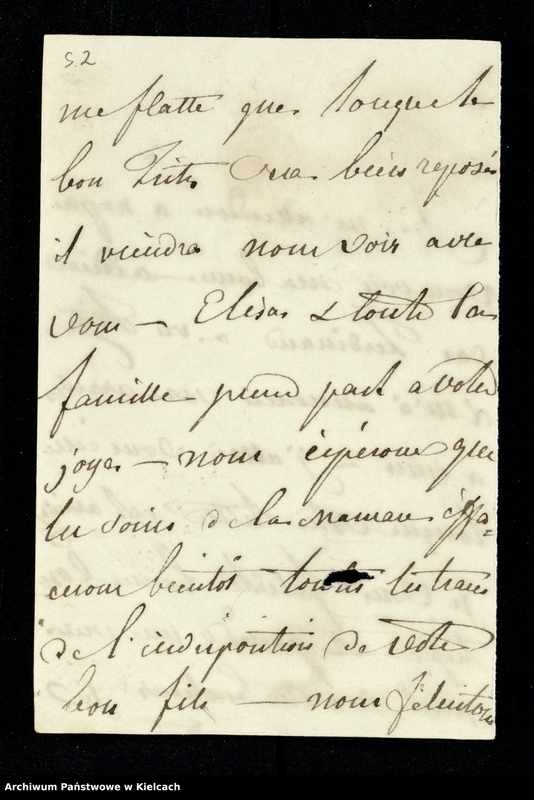 S. 2
me flatte que lorsque le
bon Fritz sera bien reposé
il viendra nous voir avec
vous — Elisa & toute la
famille prend part a votre
joye — nous éspérons que
les soins de la maman éffa=
ceront bientôt toutes les traces
de l'indisposition de votre
bon fils — nous félicitons
Archiwum Państwowe w Kielcach